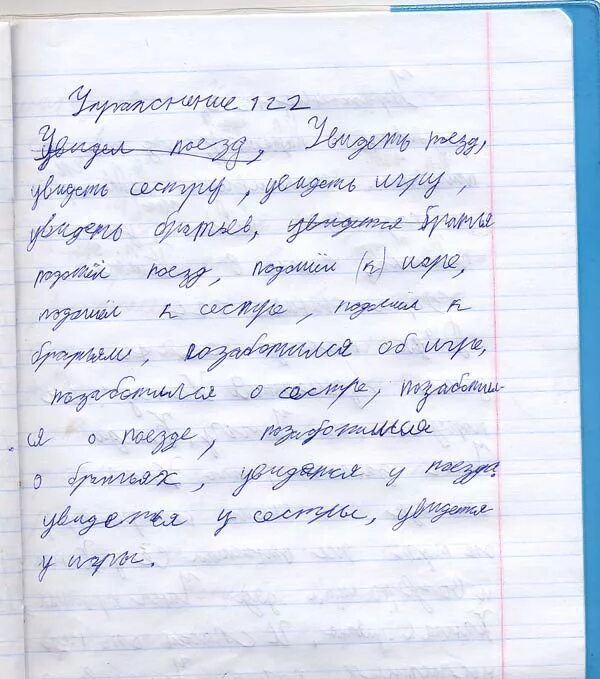 Упражнение 122
Увидел поезд, Увидеть поезд,
увидеть сестру, увидеть игру,
увидеть братьев, увидется братья
подошёл поезд, подошёл (к) игре,
подошёл к сестре, подошёл к
братьям, позаботился об игре,
позаботился о сестре, позаботил-
ся о поезде, позаботился
о братьях, увидится у поезда
увидеться у сестры, увидется
у игры.